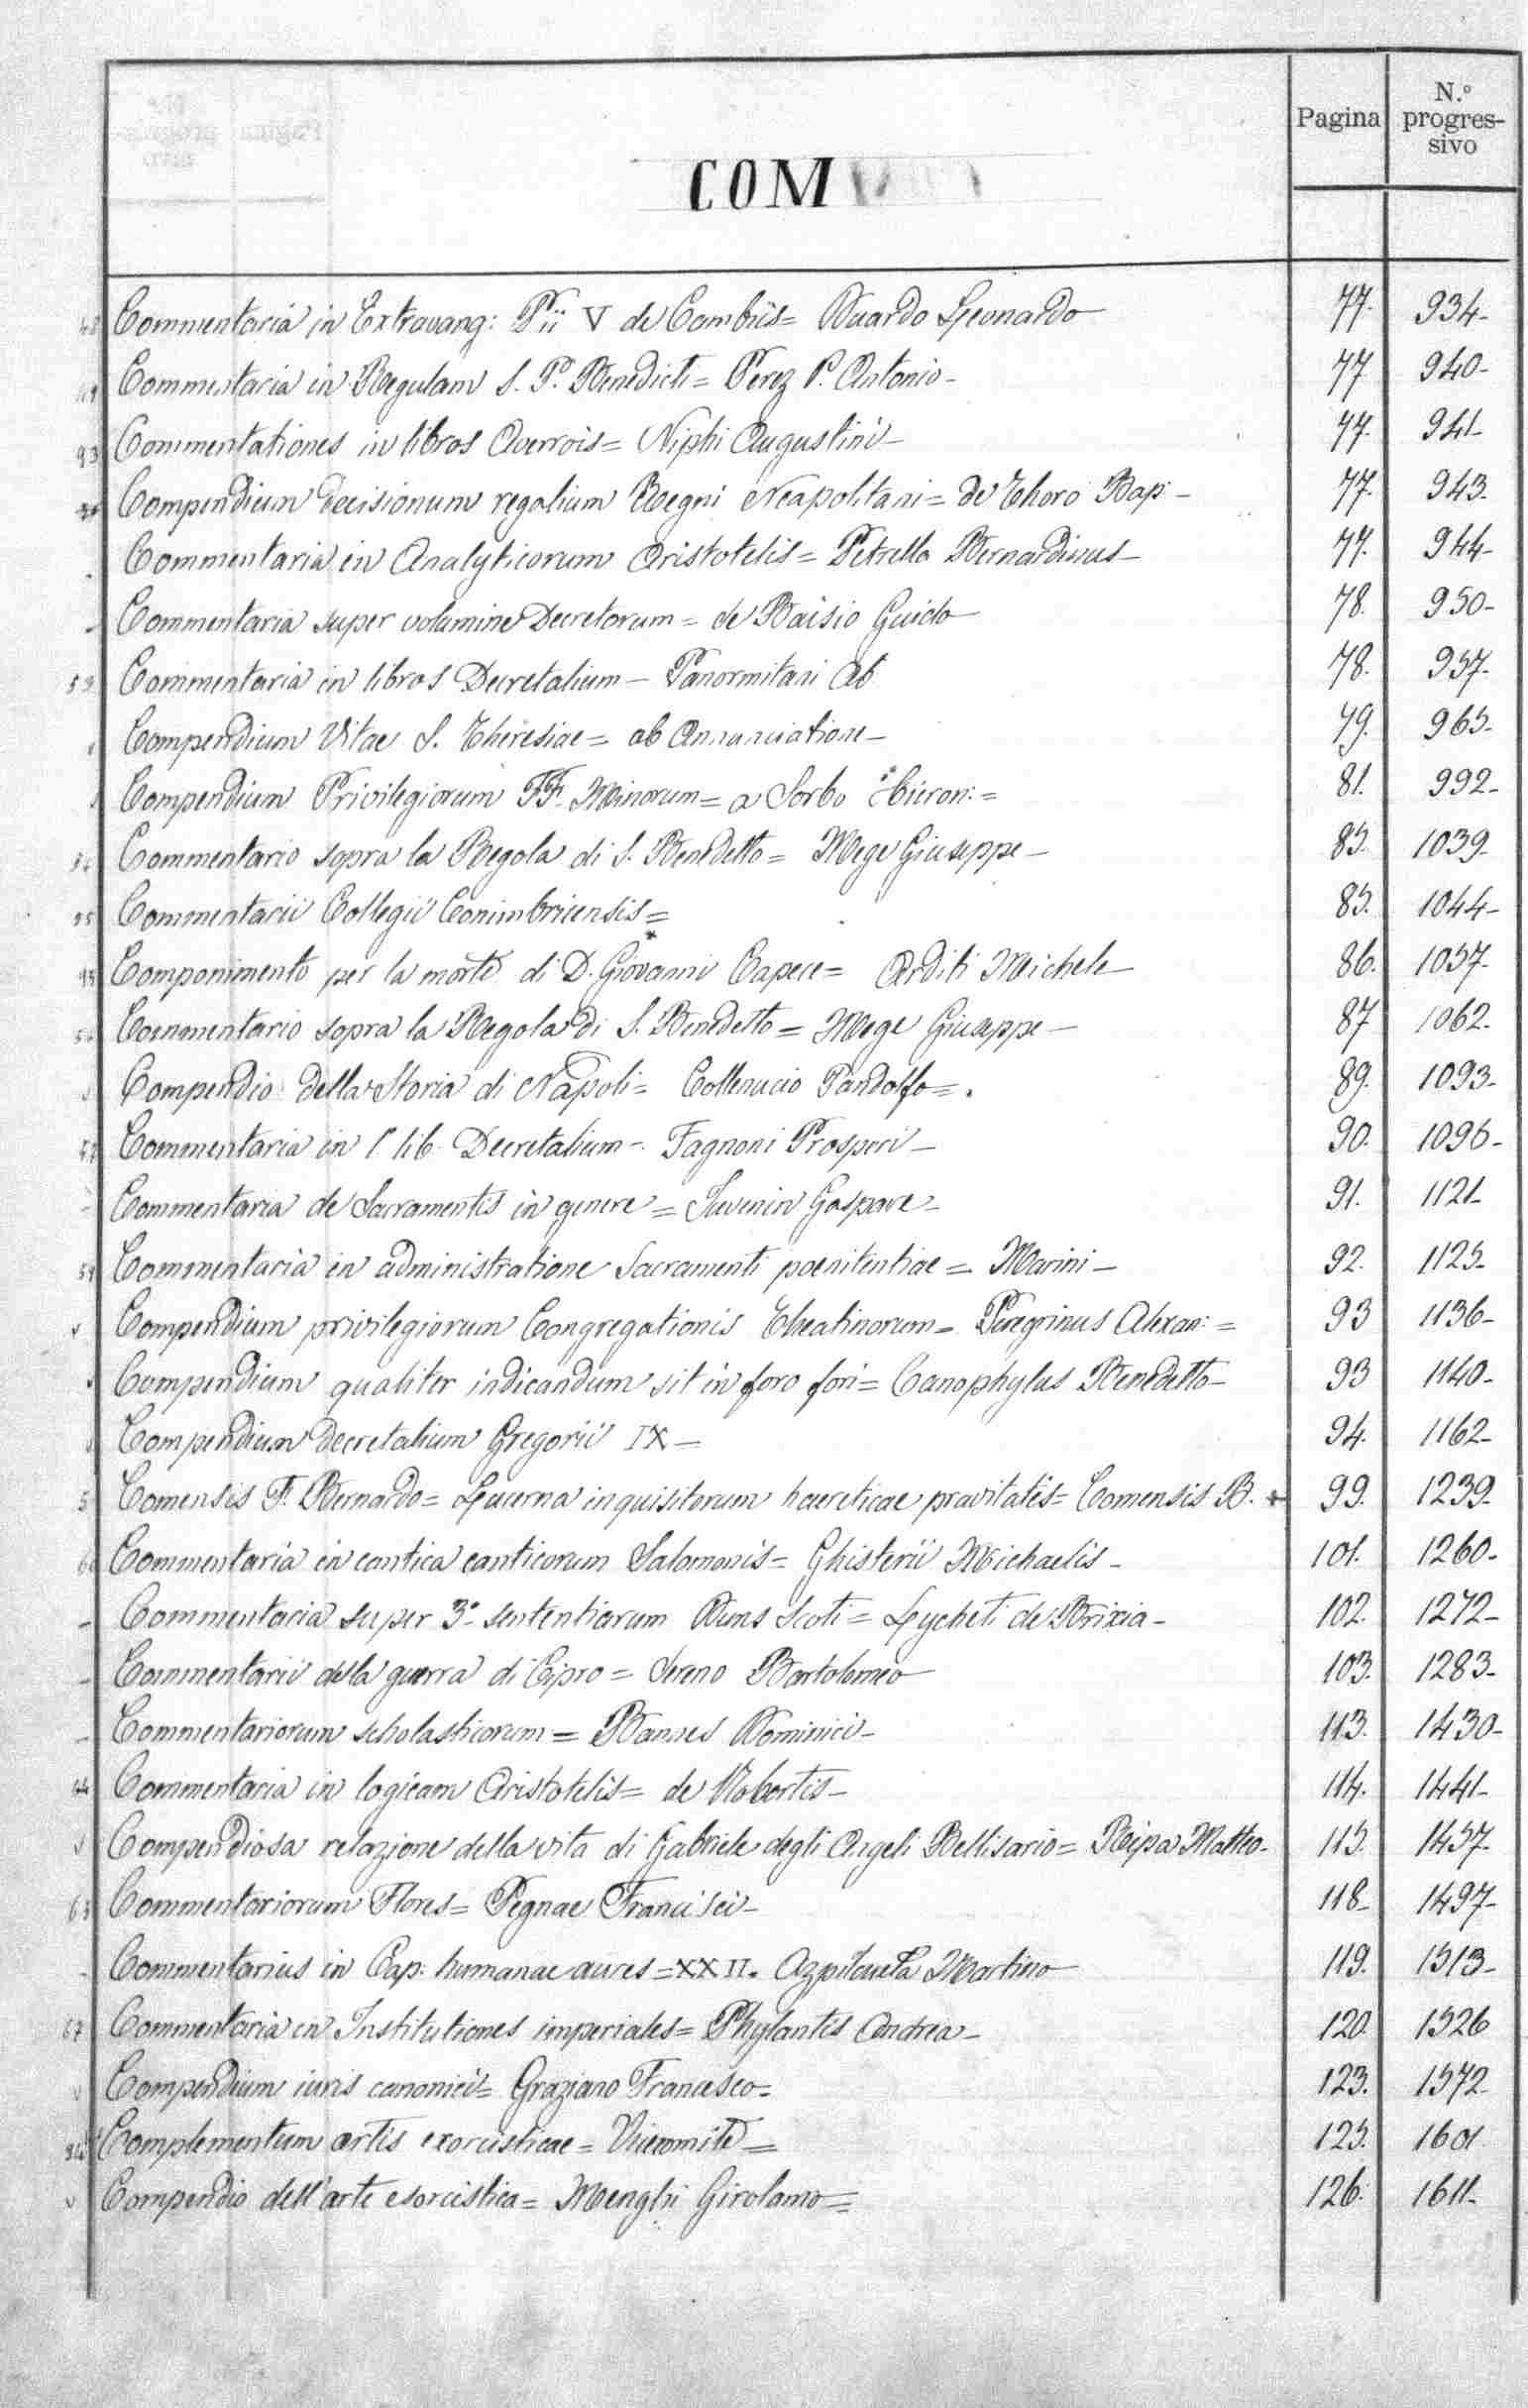 Pagina N.º progres-sivo
COM
Commentaria in Extravang: Pii V de Cambiis= Duardo Leonardo 77. 934-
Commentaria in Regulam S. P. Benedicti= Perez P. Antonio- 77 940-
93 Commentationes in libros Averrois= Niphi Augustini- 77. 941-
Compendium decisionum regalium Regni Neapolitani= de Thoro Bap:- 77. 943.
Commentaria in Analyticorum Aristotelis= Petrella Bernardinus- 77. 944-
Commentaria super volumine Decretorum= de Baisio Guido 78. 950-
53 Commentaria in libros Decretalium- Panormitani Ab 78. 957-
Compendium Vitae S. Theresiae= ab Annunciatione- 79. 965-
Compendium Privilegiorum FF. Minorum= a Sorbo Hieron:= 81. 992-
Commentario sopra la Regola di S. Benedetto= Mege Giuseppe- 85. 1039-
Commentarii Collegii Conimbricensis= 85. 1044-
Componimento per la morte di D. Giovanni Capece= Arditi Michele 86. 1057-
Commentario sopra la Regola di S. Benedetto= Mege Giuseppe- 87 1062-
Compendio della Storia di Napoli= Collenucio Pandolfo=. 89. 1093-
Commentaria in 1º lib. Decretalium- Fagnoni Prosperi- 90. 1096-
Commentaria de Sacramentis in genere= Juvenin Gaspare- 91. 1121-
Commentaria in administratione Sacramenti poenitentiae= Marini- 92. 1125-
v Compendium privilegiorum Congregationis Theatinorum= Peregrinus Alexan:= 93 1136-
Compendium qualiter iudicandum sit in foro fori= Canophylus Benedetto- 93 1140-
Compendium Decretalium Gregorii IX- 94. 1162-
5 Comensis F. Bernardo= Lucerna inquisitorum haereticae pravitatis= Comensis B. + 99. 1239-
Commentaria in cantica canticorum Salomonis= Ghislerii Michaelis- 101. 1260-
- Commentaria super 3º sententiarum Duns Scoti= Lycheti de Brixia- 102. 1272-
- Commentarii della guerra di Cipro= Sereno Bartolomeo 103. 1283-
- Commentariorum scholasticorum= Bannes Dominici- 113. 1430-
44 Commentaria in logicam Aristotelis= de Nobertis- 114. 1441-
v Compendiosa relazione della vita di Gabriele degli Angeli Bellisario= Ripa Matteo- 115. 1457-
63 Commentariorum Flores= Pegnae Francisci- 118- 1497-
- Commentarius in Cap. humanae aures=XXII. Azpilcueta Martino 119. 1513-
67 Commentaria in Institutiones imperiales= Phylantis Andrea- 120. 1526
v Compendium iuris canonici= Graziano Francesco= 123. 1572-
Complementum artis exorcisticae= Vicecomite= 125. 1601
v Compendio dell'arte esorcistica= Menghi Girolamo= 126. 1611-